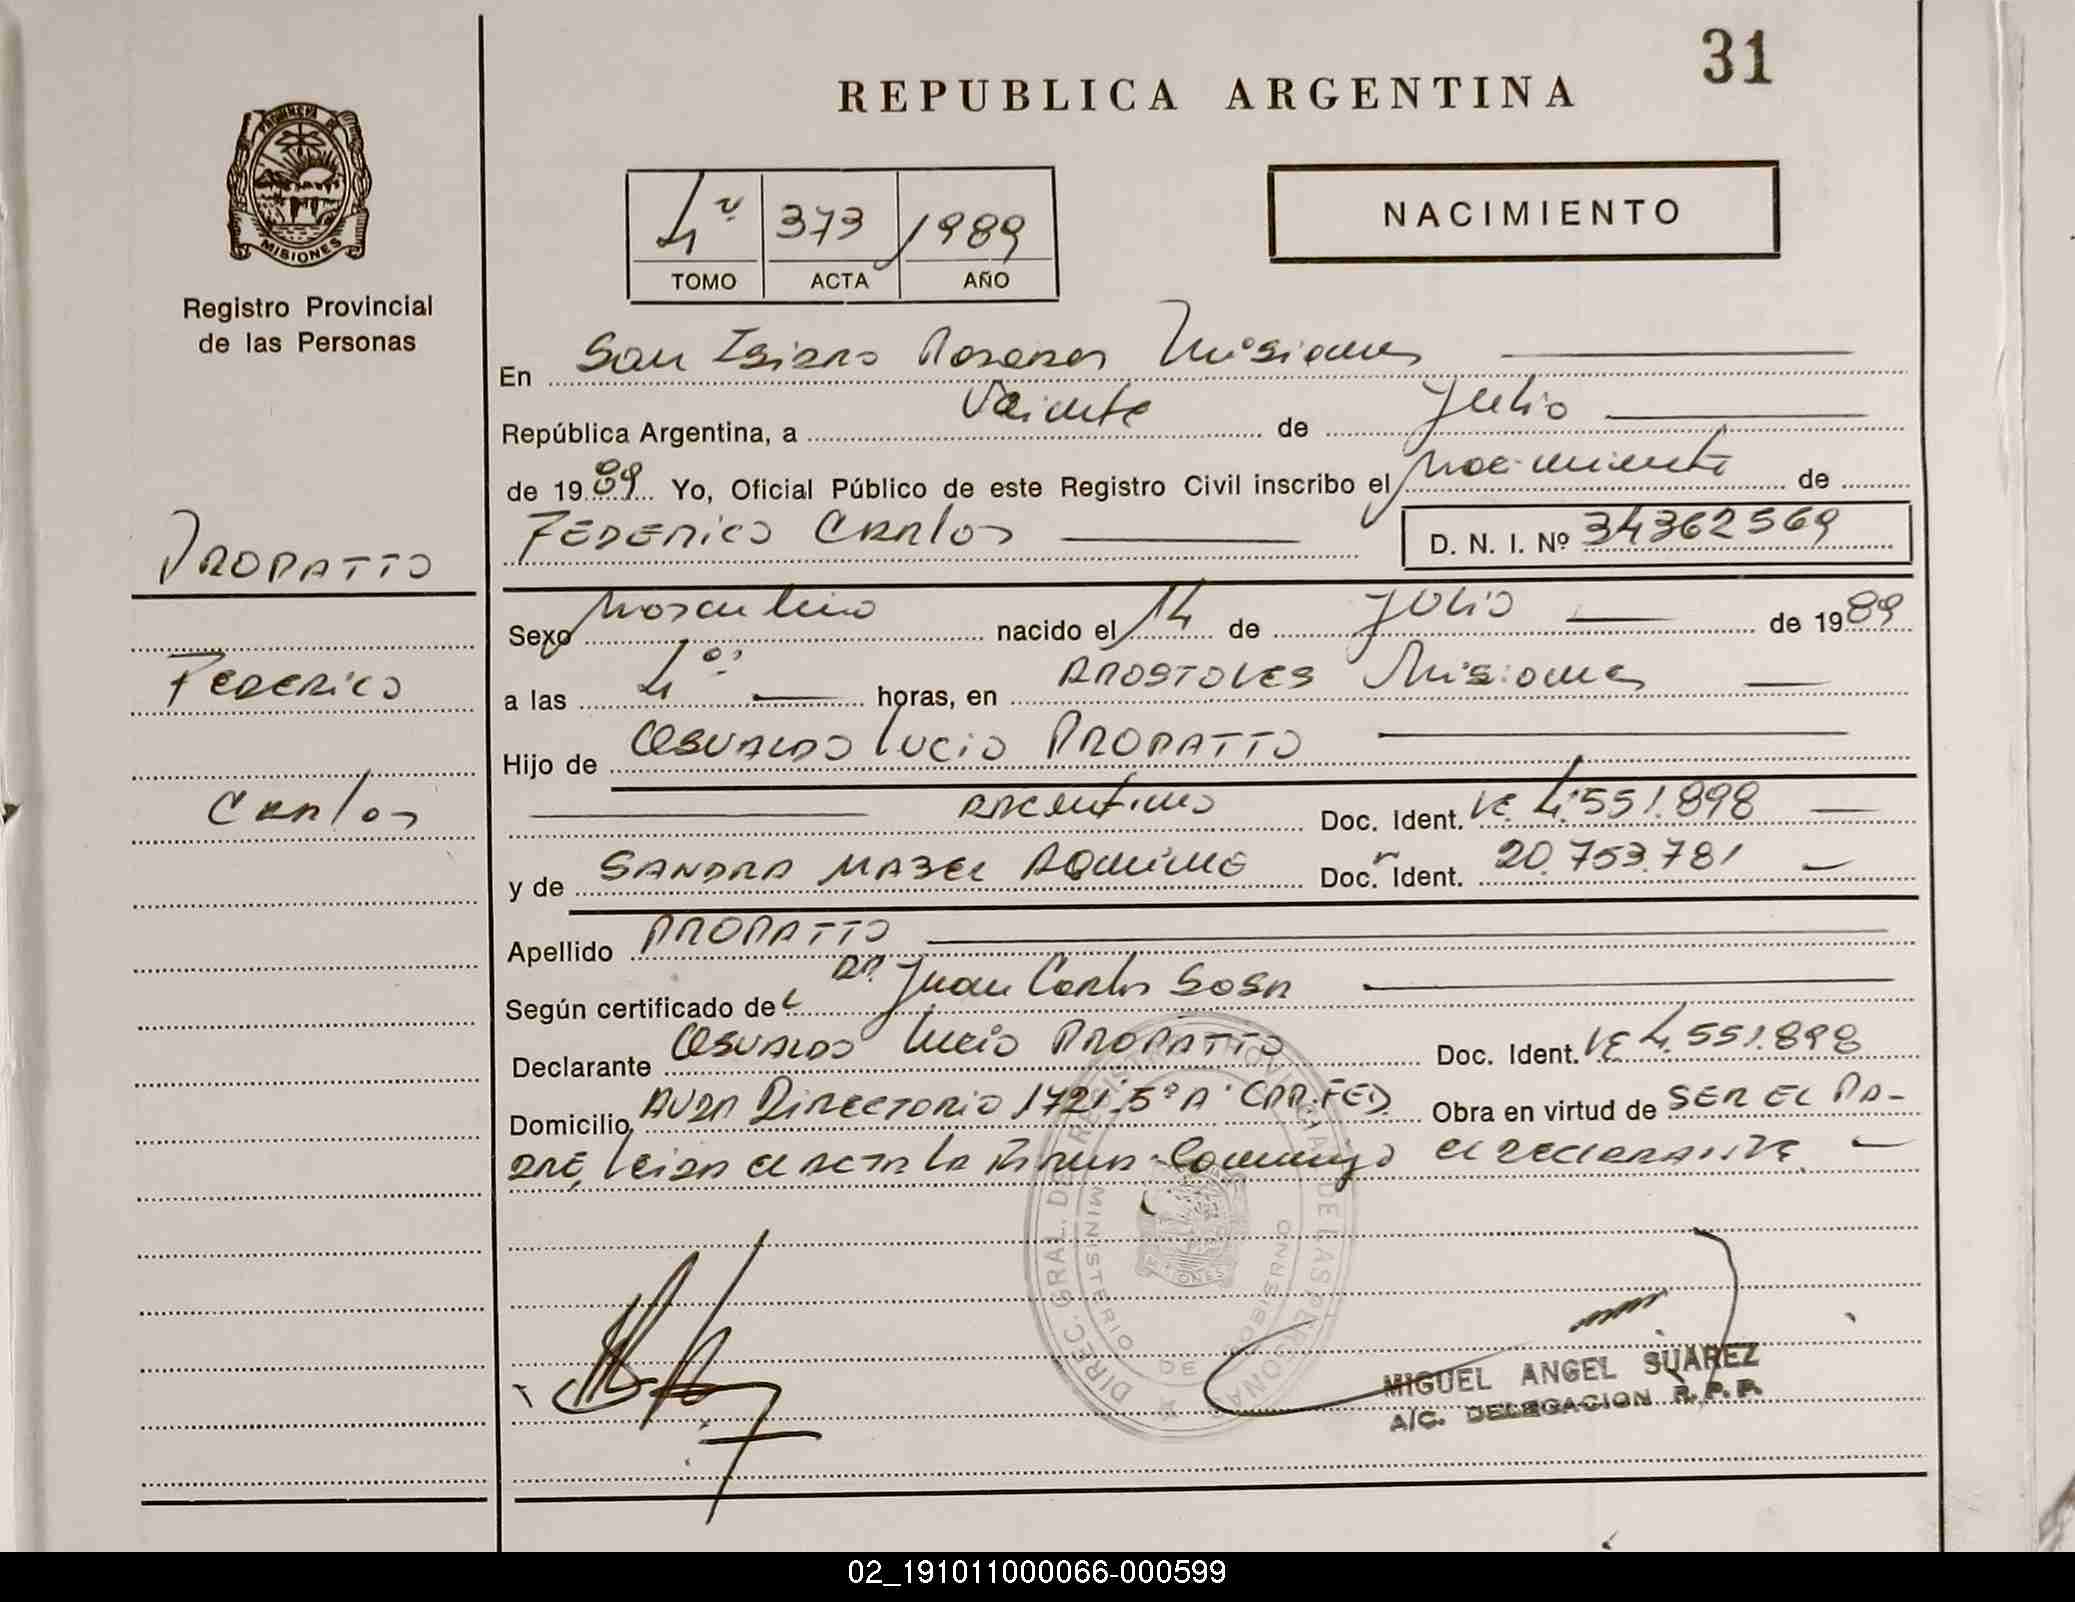 31
REPUBLICA ARGENTINA
PROVINCIA DE
MISIONES
Registro Provincial
de las Personas
4º 373 1989
TOMO ACTA AÑO
NACIMIENTO
En San Isidro Posadas Misiones
República Argentina, a Veinte de Julio
de 1989 Yo, Oficial Público de este Registro Civil inscribo el nacimiento de
Federico Carlos D. N. I. Nº 34362569
PROPATTO
Federico
Carlos
Sexo masculino nacido el 14 de Julio de 1989
a las 4 horas, en APOSTOLES Misiones
Hijo de OSVALDO LUCIO PROPATTO
argentino Doc. Ident. LE 4.551.898
y de SANDRA MABEL AQUINO Doc. Ident. 20.753.781
Apellido PROPATTO
Según certificado del Dr. Juan Carlos Sosa
Declarante OSVALDO Lucio PROPATTO Doc. Ident. LE 4.551.898
Domicilio AVDA Directorio 1721 5º A CAP. FED. Obra en virtud de SER EL PA-
DRE, Leida el acta la firma conmigo el declarante.
DIREC. GRAL. DE REGISTRO PROVINCIAL DE LAS PERSONAS
MINISTERIO DE GOBIERNO
MISIONES
MIGUEL ANGEL SUAREZ
A/C. DELEGACION R.P.P.
02_191011000066-000599